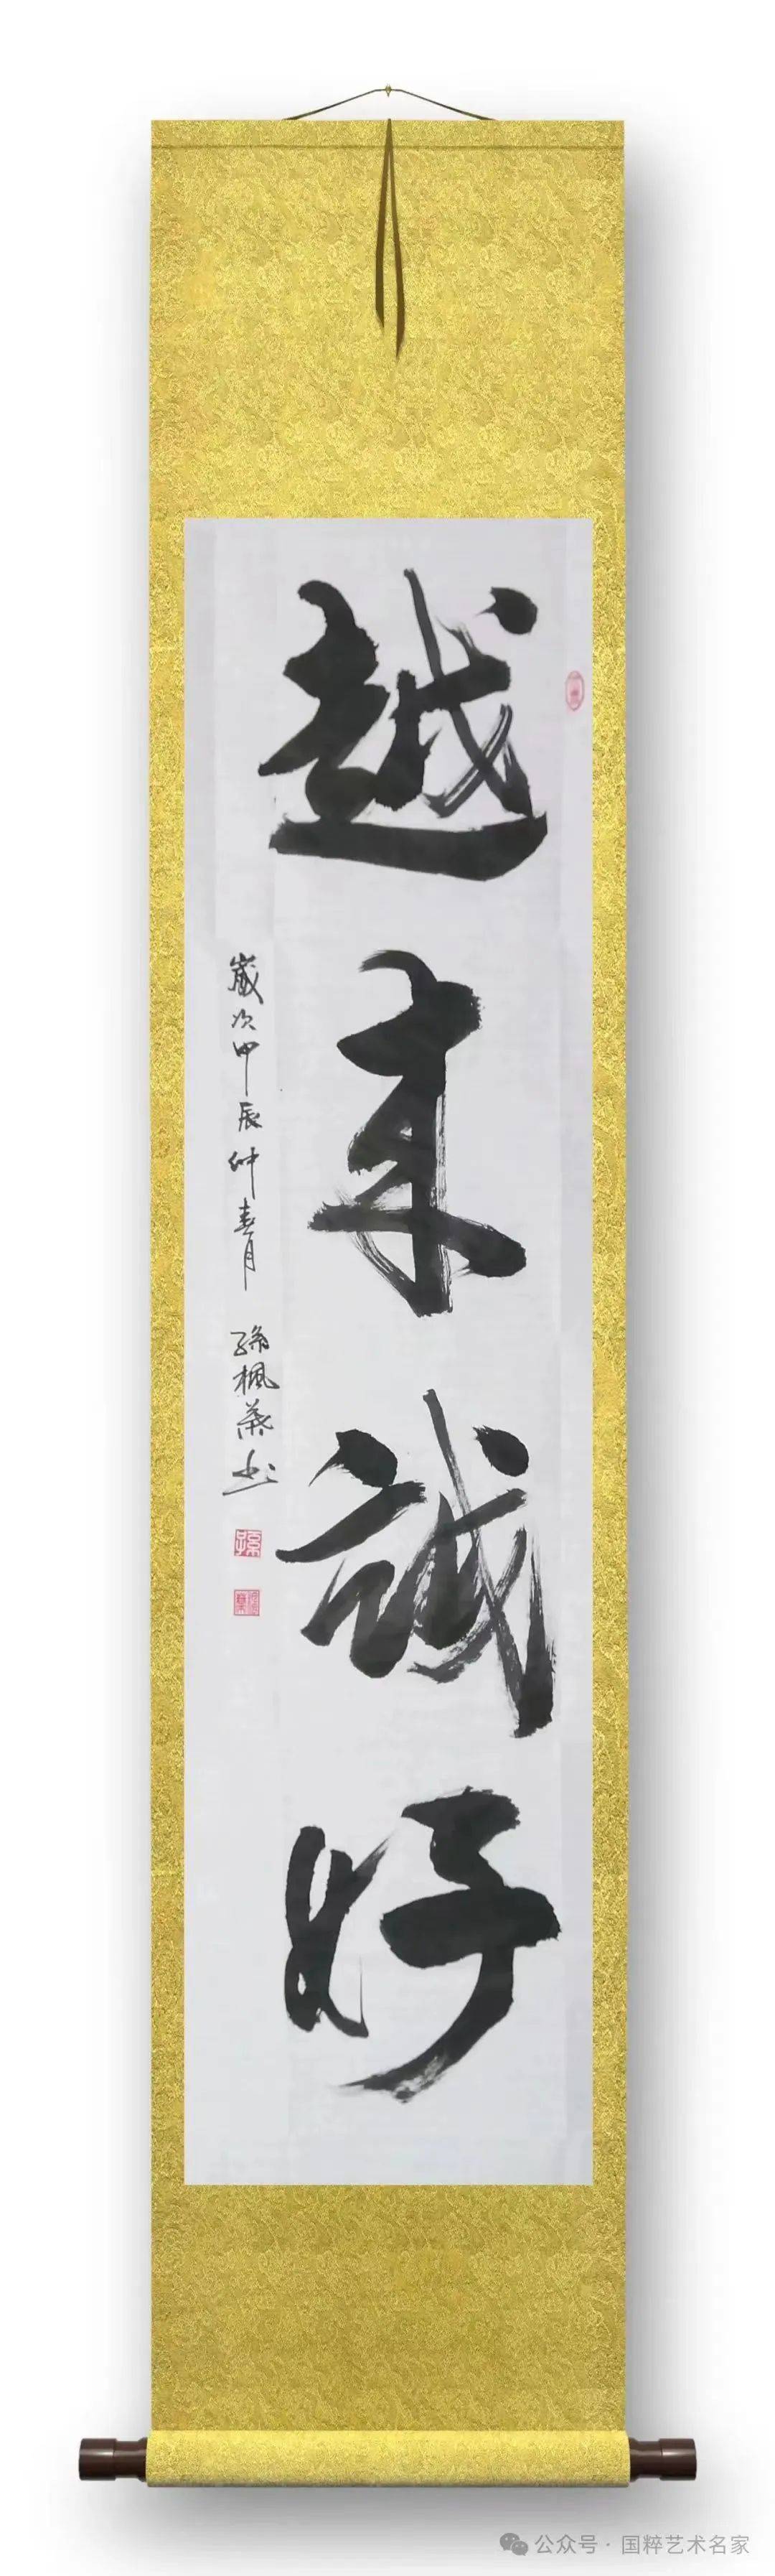 越来越好
歲次甲辰仲春月 孫楓葉书
孫
公众号 · 国粹艺术名家